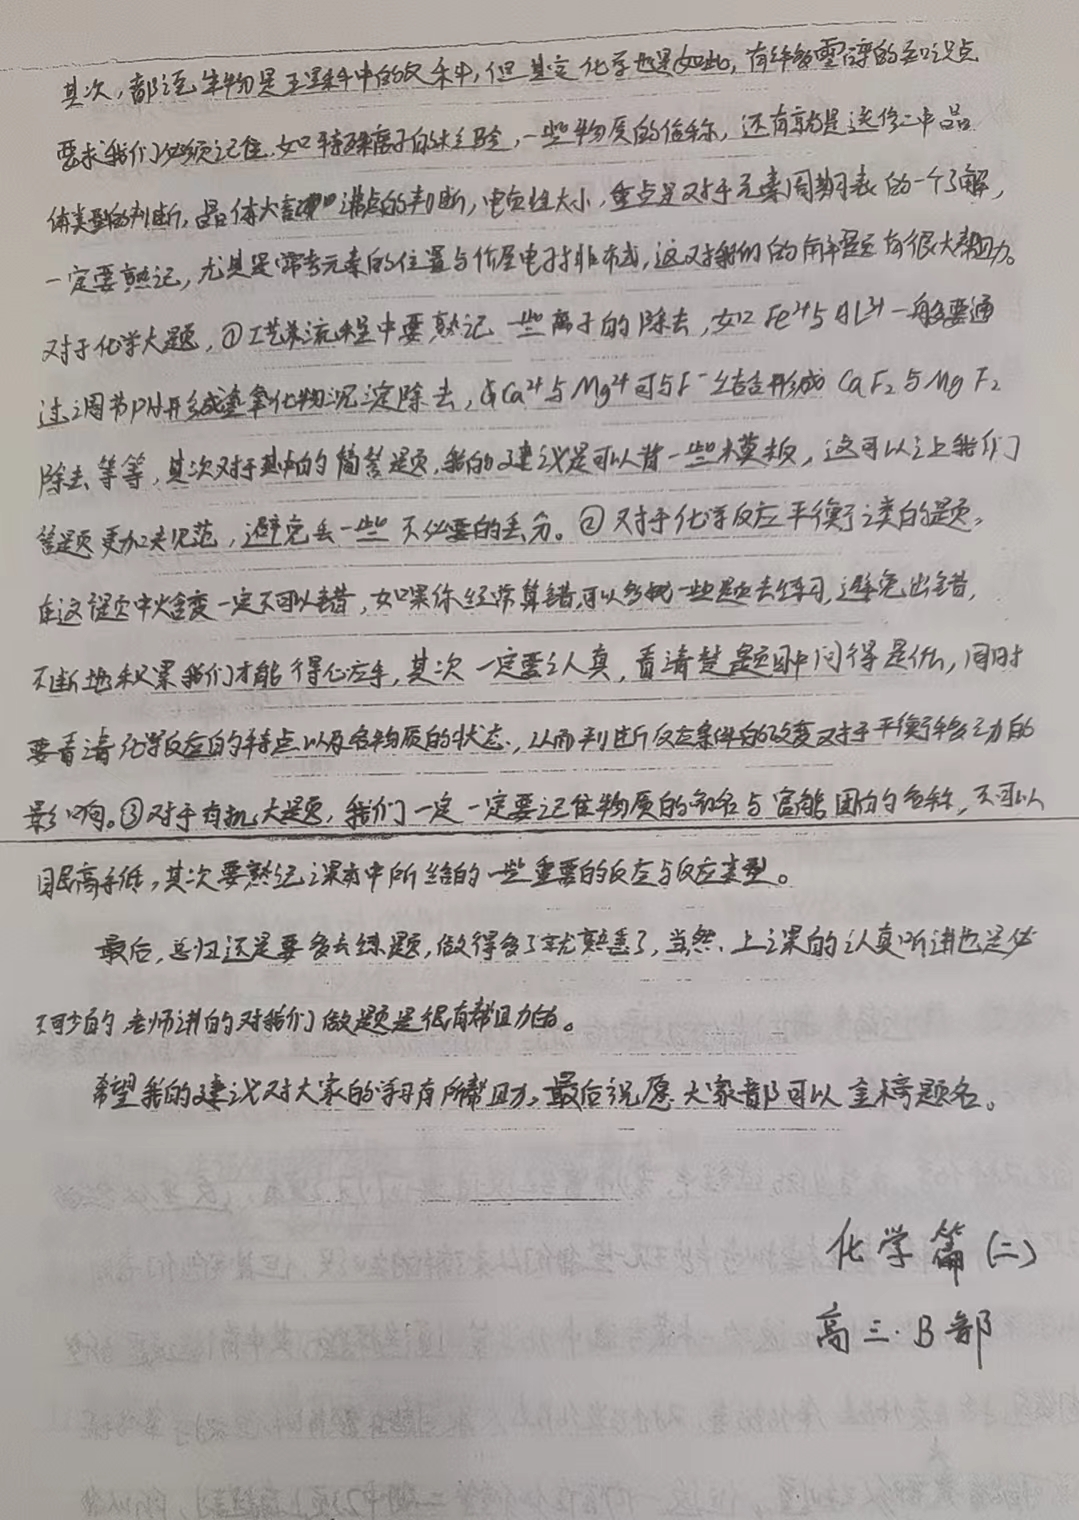 其次,都说生物是理科中的文科,但其实化学也是如此,有许多零碎的知识点
要求我们必须记住,如特殊离子的检验,一些物质的俗称,还有就是选修二中晶
体类型的判断,晶体大 沸点的判断,电负性大小,重点是对于元素周期表的一个了解,
一定要熟记,尤其是常考元素的位置与价层电子排布式,这对我们的解题有很大帮助。
对于化学大题,①工艺流程中要熟记一些离子的除去,如Fe²⁺与Al³⁺一般要通
过调节PH形成氢氧化物沉淀除去,Ca²⁺与Mg²⁺可与F⁻结合形成CaF₂与MgF₂
除去等等,其次对于其中的简答题,我的建议是可以背一些模板,这可以让我们
答题更加规范,避免丢一些不必要的丢分。②对于化学反应平衡类的题,
在这误题中焓变一定不可以错,如果你经常算错,可以多找一些题去练习,避免出错,
不断地积累我们才能得心应手,其次一定要认真,看清楚题目中问得是什么,同时
要看清化学反应的特点以及各物质的状态,从而判断反应条件的改变对于平衡移动的
影响。③对于有机大题,我们一定一定要记住物质的命名与官能团的名称,不可以
眼高手低,其次要熟记课本中所给的一些重要的反应与反应类型。
最后,总归还是要多去练题,做得多了就熟悉了,当然,上课的认真听讲也是必
不可少的,老师讲的对我们做题是很有帮助的。
希望我的建议对大家的学习有所帮助,最后祝愿大家都可以金榜题名。
化学篇(二)
高三·B部